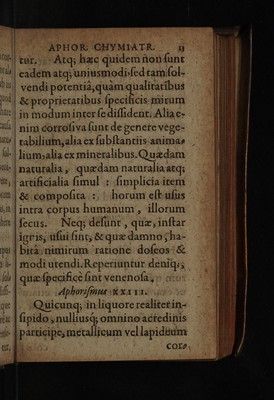 APHOR CHYMIATR. 23
tur. Atq; hæc quidem non sunt
eadem atq; uniusmodi: sed tam sol-
vendi potentiâ, quàm qualitatibus
& proprietatibus specificis mirum
in modum inter se dissident. Alia e-
nim corrosiva sunt de genere vege-
tabilium, alia ex substantiis anima-
lium: alia ex mineralibus. Quædam
naturalia, quædam naturalia atq;
artificialia simul : simplicia item
& composita : horum est usus
intra corpus humanum, illorum
secus. Neq; desunt, quæ, instar
ignis, usui sint, & quæ damno, ha-
bitâ nimirum ratione doseos &
modi utendi. Reperiuntur deniq;,
quæ specificè sint venenosa.
Aphorismus XXIII.
Quicunq; in liquore realiter in-
sipido, nulliusq; omnino acredinis
participe, metallicum vel lapideum
cor-